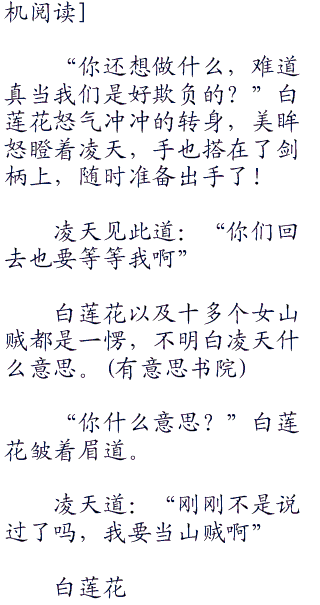 机阅读]
“你还想做什么，难道
真当我们是好欺负的？”白
莲花怒气冲冲的转身，美眸
怒瞪着凌天，手也搭在了剑
柄上，随时准备出手了！
凌天见此道：“你们回
去也要等等我啊”
白莲花以及十多个女山
贼都是一愣，不明白凌天什
么意思。(有意思书院)
“你什么意思？”白莲
花皱着眉道。
凌天道：“刚刚不是说
过了吗，我要当山贼啊”
白莲花